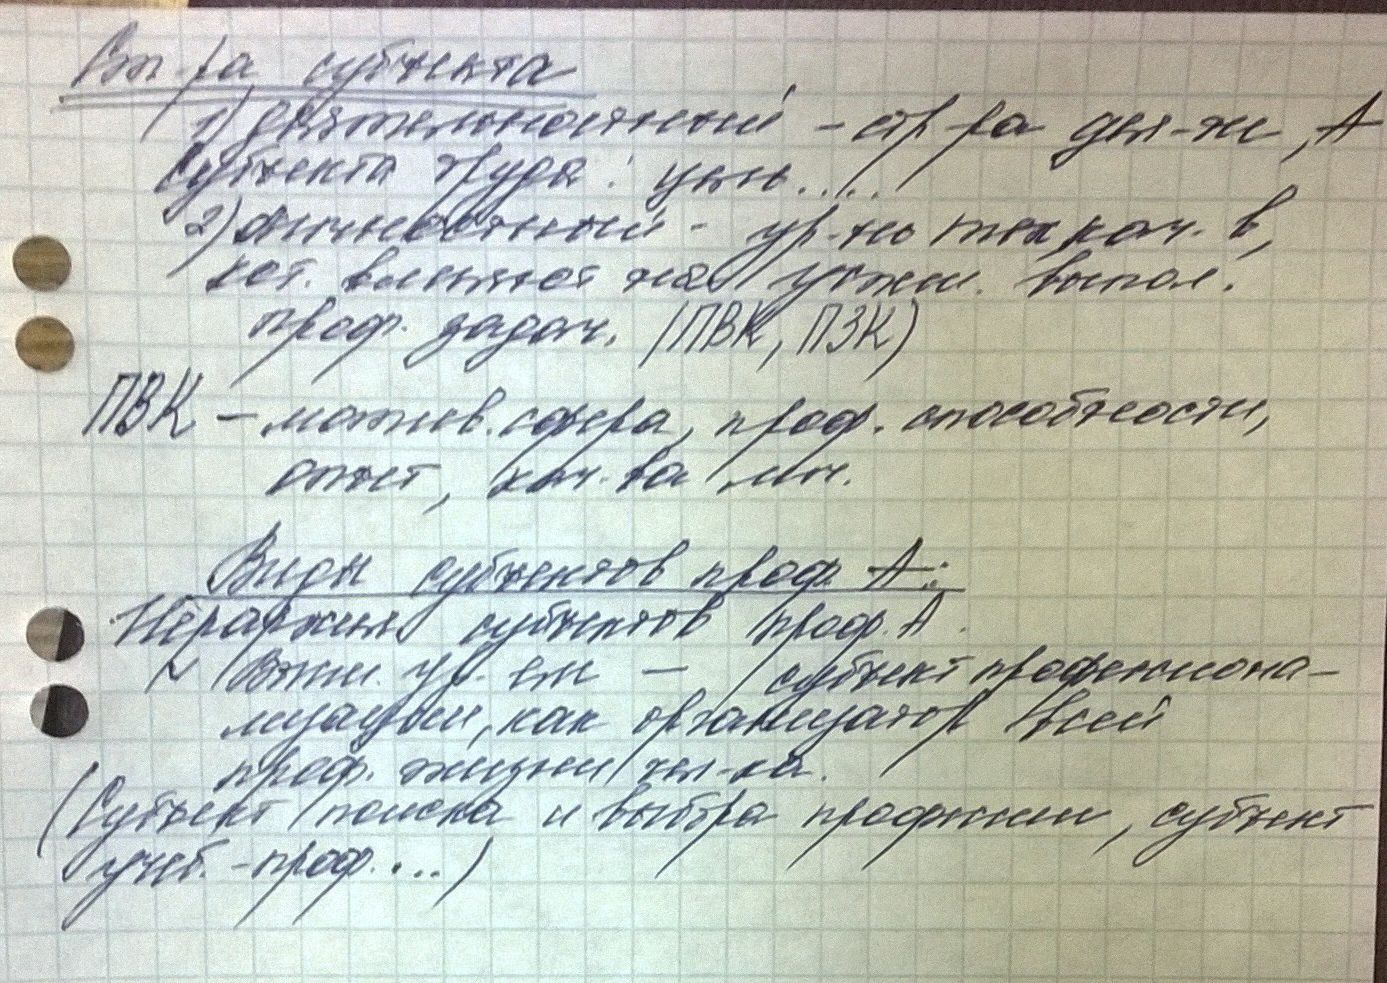 субъекта
1) деятельностный - стр-ра деят-ти, А
субъекта труда: цель....
2) личностный - ур-нь тех кач-в,
кот. влияют на успеш. выпол.
проф. задач. (ПВК, ПЗК)
ПВК - мотив. сфера, проф. способности,
опыт, кач-ва личн.
Виды субъектов проф. А:
Иерархия субъектов проф. А.
ур. - субъект профессиона-
лизации, как организатор всей
проф. жизни чел-ка.
(Субъект поиска и выбора профессии, субъект
учеб.-проф....)